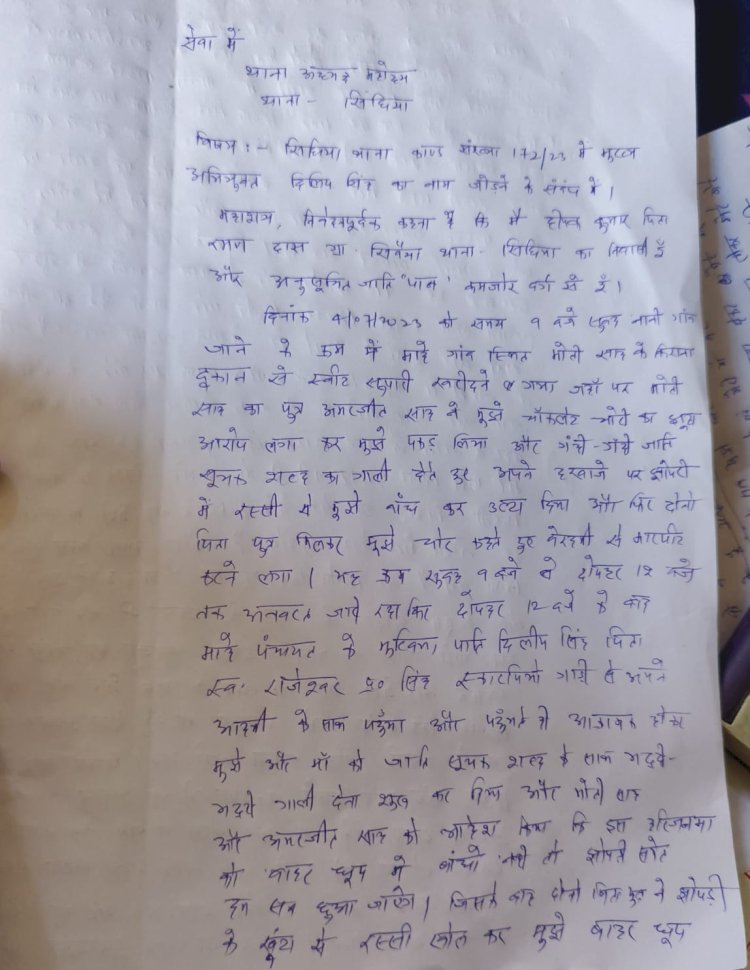 सेवा में
थाना अध्यक्ष महोदय
थाना - सिंघिया
विषय :- सिंघिया थाना काण्ड संख्या 172/23 में मुख्य
अभियुक्त दिलिप सिंह का नाम जोड़ने के संबंध में।
महाशय, निवेदनपूर्वक कहना है कि मै दीपक कुमार पिता
रमण दास ग्रा. थाना- सिंघिया का निवासी हूँ
और अनुसूचित जाति "पान" कमजोर वर्ग से हूँ।
दिनांक 4/07/2023 को समय 9 बजे सुबह नानी गाँव
जाने के क्रम में माहे गांव स्थित मोती साह के किराना
दूकान से स्वीट सुपारी खरीदने गया जहाँ पर मोती
साह का पुत्र अमरजीत साह ने मुझे चॉकलेट चोरी का झूठा
आरोप लगा कर मुझे पकड़ लिया और गंदी-गंदी जाति
सूचक शब्द का गाली देते हुए अपने दरवाजे पर झोपरी
में रस्सी से मुझे बाँध कर उल्टा दिया और फिर दोनो
पिता पुत्र मिलकर मुझे चोर कहते हुए बेरहमी से मारपीट
करने लगा। यह क्रम सुबह 9 बजे से दोपहर 12 बजे
तक अनवरत जारी रहा फिर दोपहर 12 बजे के बाद
माहे पंचायत के मुखिया पति दिलीप सिंह पिता
स्व॰ राजेश्वर प्र॰ सिंह स्कारपियो गारी से अपने
आदमी के साथ पहुँचा और पहुँचते ही आक्रामक होकर
मुझे और माँ को जाति सूचक शब्द के साथ भद्दी-
भद्दी गाली देना शुरू कर दिया और मोती साह
और अमरजीत साह को आदेश किया कि इस हरिजनमा
को बाहर धूप में बांधो नही तो झोपरी सहित
हम सब छुआ जाऐंगे। जिसके बाद दोनो पिता पुत्र ने झोपड़ी
के खूंटा से रस्सी खोल कर मुझे बाहर धूप